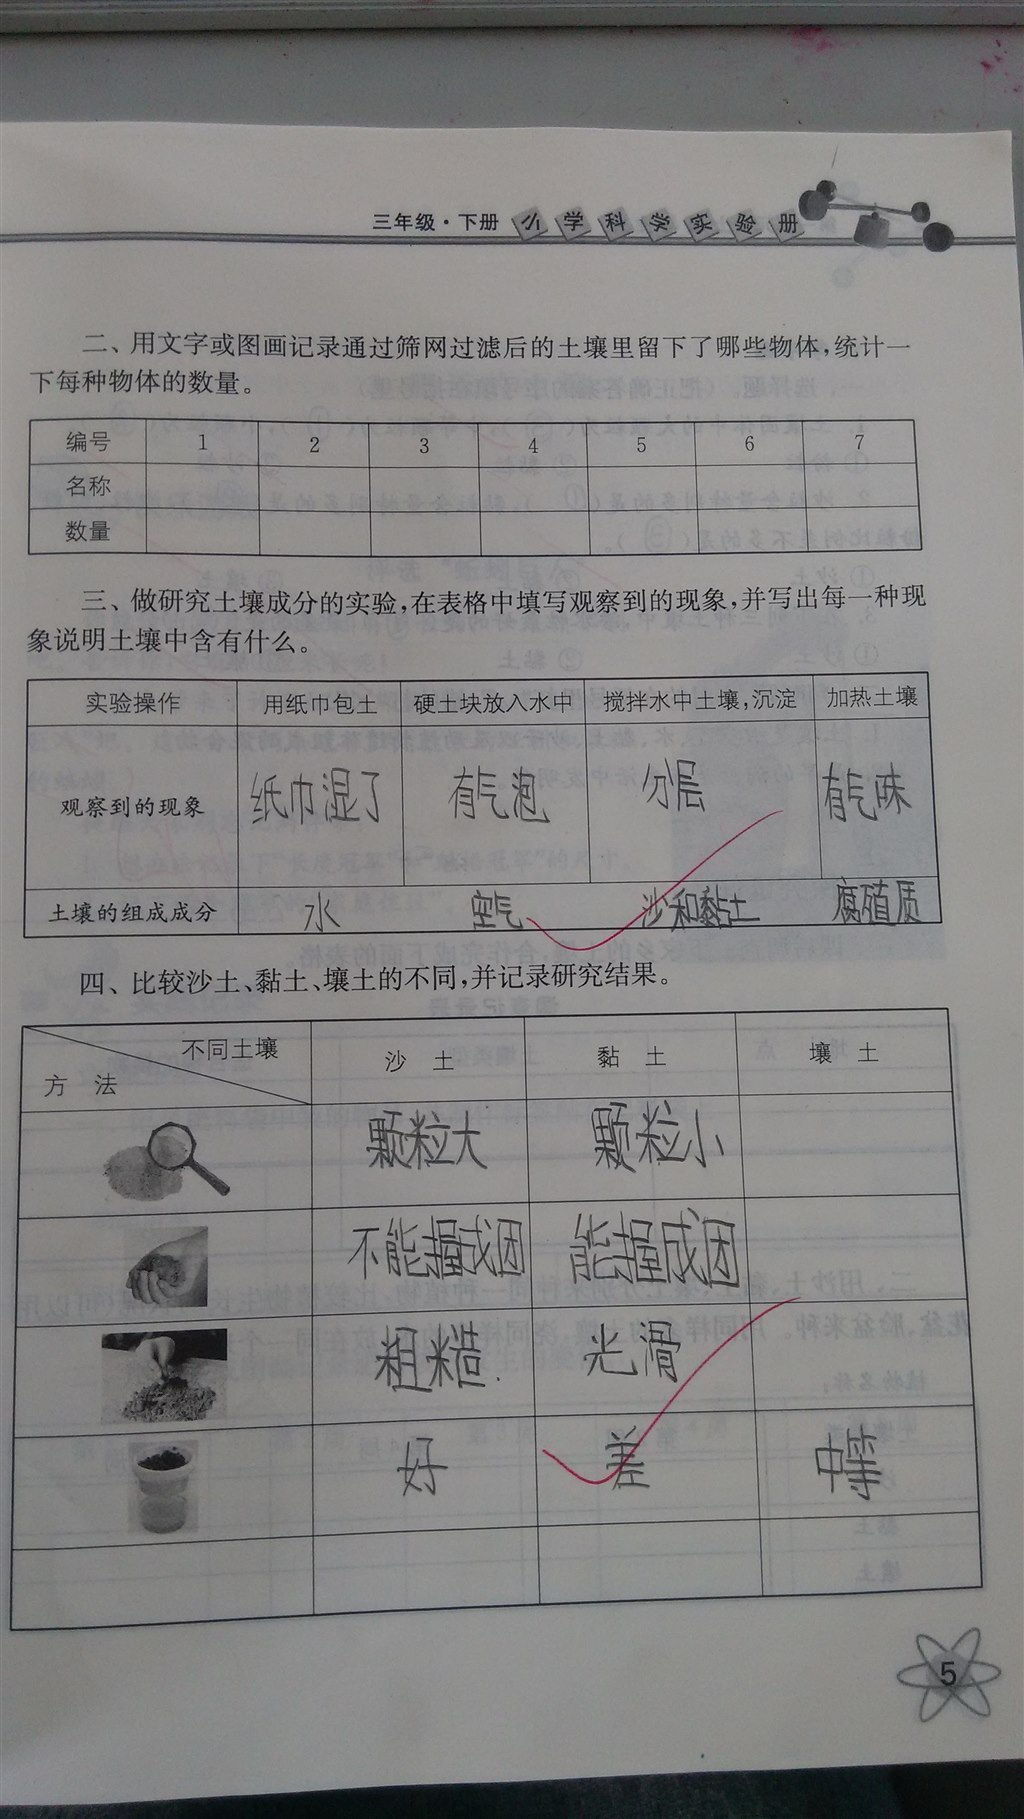 三年级·下册 小学科学实验册
二、用文字或图画记录通过筛网过滤后的土壤里留下了哪些物体,统计一
下每种物体的数量。
编号 1 2 3 4 5 6 7
名称
数量
三、做研究土壤成分的实验,在表格中填写观察到的现象,并写出每一种现
象说明土壤中含有什么。
实验操作 用纸巾包土 硬土块放入水中 搅拌水中土壤,沉淀 加热土壤
观察到的现象 纸巾湿了 有气泡 分层 有气味
土壤的组成成分 水 空气 沙和黏土 腐殖质
四、比较沙土、黏土、壤土的不同,并记录研究结果。
不同土壤 沙土 黏土 壤土
方法
颗粒大 颗粒小
不能握成团 能握成团
粗糙. 光滑
好 差 中等
5